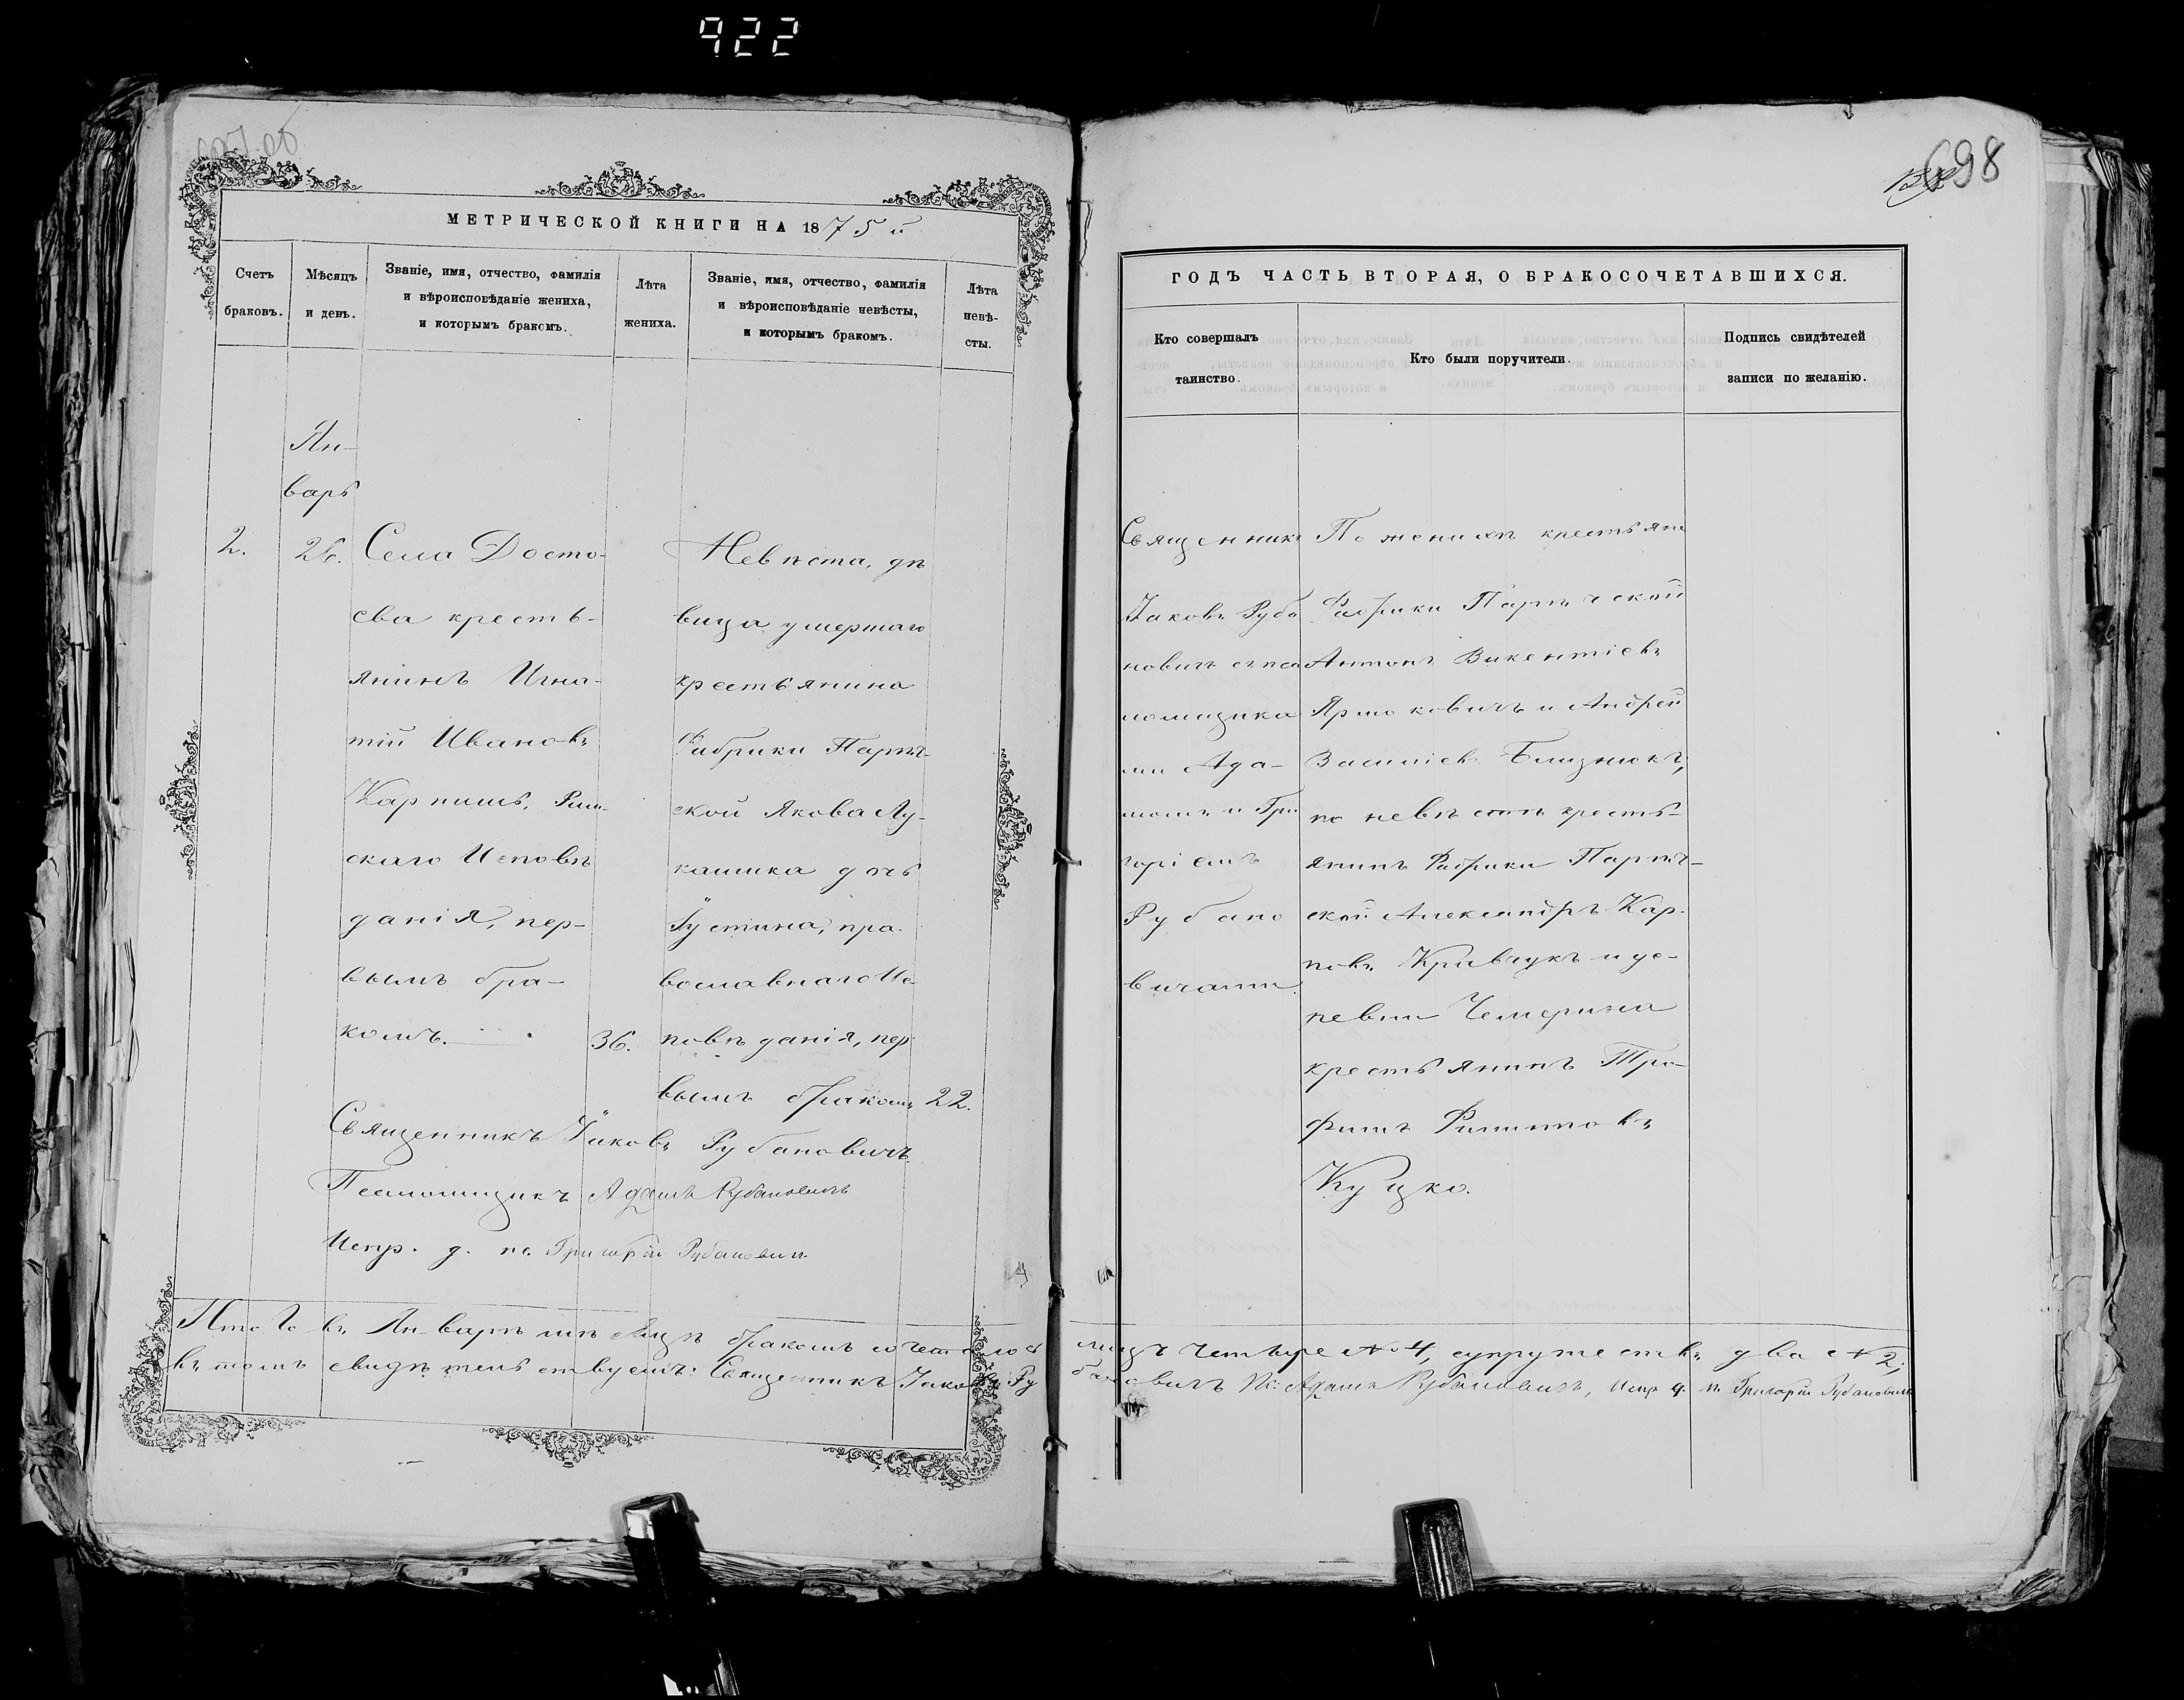 922
698
МЕТРИЧЕСКОЙ КНИГИ НА 1875й
Счетъ браковъ.
Мѣсяцъ и день.
Званіе, имя, отчество, фамилія и вѣроисповѣданіе жениха, и которымъ бракомъ.
Лѣта жениха.
Званіе, имя, отчество, фамилія и вѣроисповѣданіе невѣсты, и которымъ бракомъ.
Лѣта невѣ-сты.
Ян-
варь
2.
26.
Села Досто-
ева кресть-
янинъ Игна-
тій Ивановъ
Карпишъ, Рим-
скаго Исповѣ
данія, пер-
вымъ бра-
комъ.
36.
Невѣста, дѣ
вица умершаго
крестьянина
Фабрики Парѣ-
ской Якова Лу-
кашика дочь
Іустина, пра-
вославнаго Ис
повѣданія, пер
вымъ бракомъ
22.
Священникъ Іаковъ Рубановичъ
Псаломщикъ Адамъ Рубановичъ
Испр. д. пс. Григорій Рубановичъ
ГОДЪ ЧАСТЬ ВТОРАЯ, О БРАКОСОЧЕТАВШИХСЯ.
Кто совершалъ таинство.
Кто были поручители.
Подпись свидѣтелей записи по желанію.
Священникъ
Іаковъ Руба
новичъ съ пса
ломщика
ми Ада-
момъ и Гри
горіемъ
Рубано
вичами.
По женихѣ крестьяне
Фабрики Парѣчской
Антонъ Викентіевъ
Ярмоковичъ и Андрей
Василіевъ Близнюкъ,
по невѣстѣ кресть-
янинъ Фабрики Парѣч-
ской Александръ Кар-
повъ Кравчукъ и де-
ревни Чемерина
крестьянинъ Тро-
фимъ Филиповъ
Куцко.
Итого въ Январѣ мѣсяцѣ бракомъ сочеталось лицъ четыре №4, супружествъ два №2;
въ томъ свидѣтельствуемъ: Священникъ Іаковъ Рубановичъ Пс: Адамъ Рубановичъ, Испр. д. пс. Григорій Рубановичъ